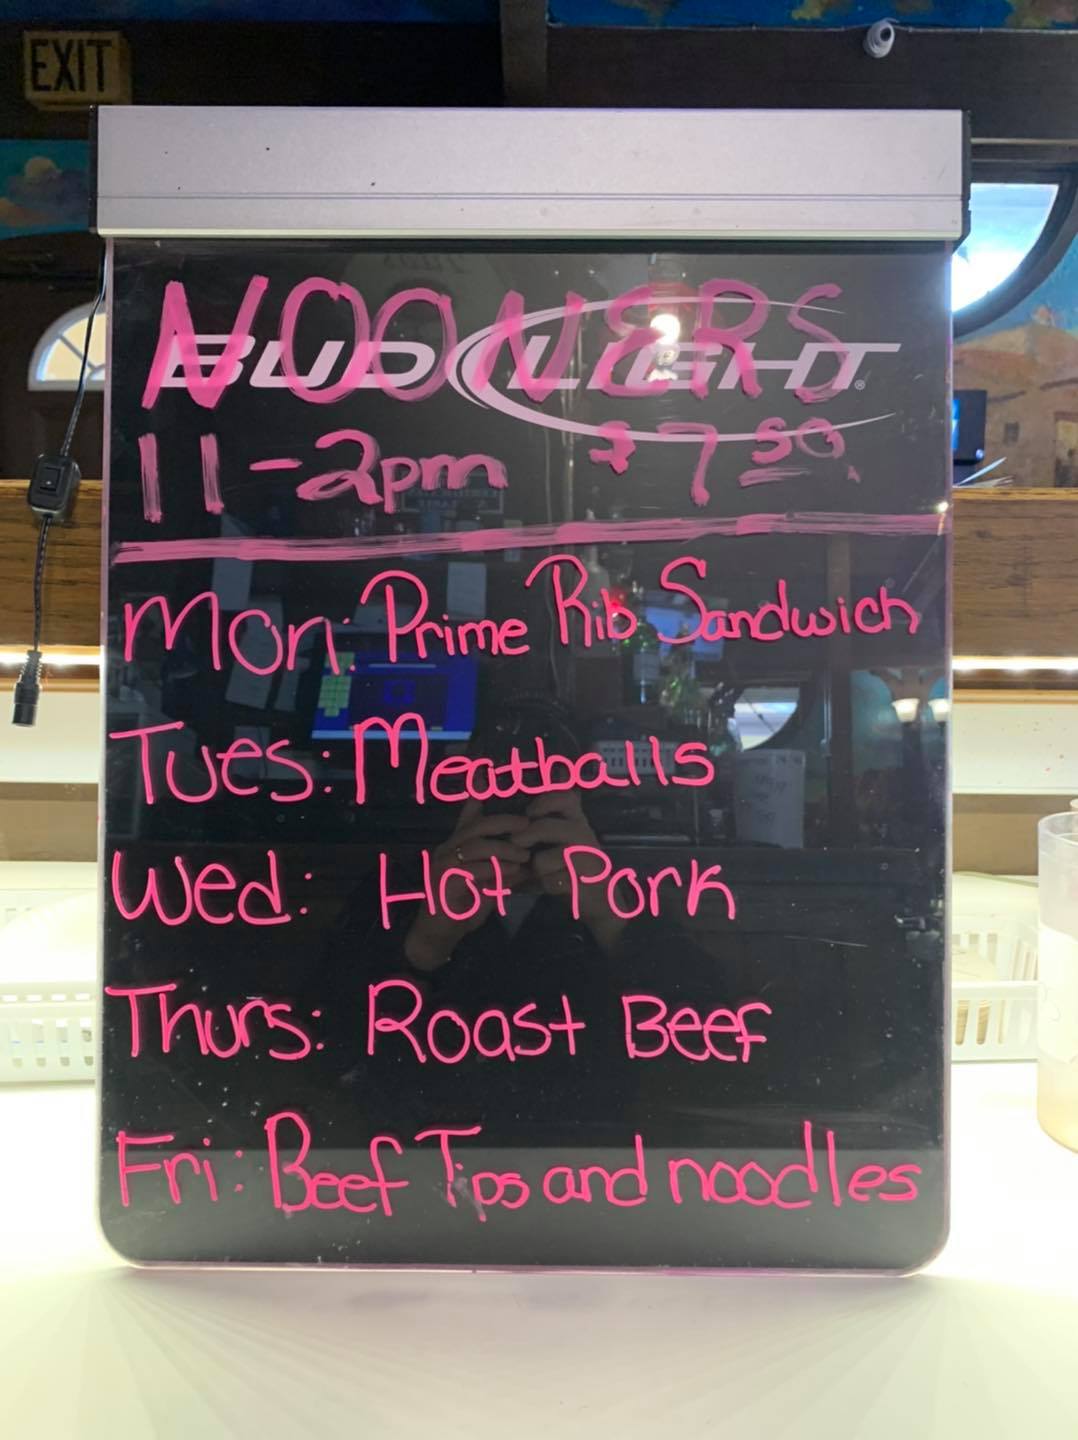 EXIT
NOONERS
BUD LIGHT®
11-2pm $7 50
Mon: Prime Rib Sandwich
Tues: Meatballs
Wed: Hot Pork
Thurs: Roast Beef
Fri: Beef Tips and noodles